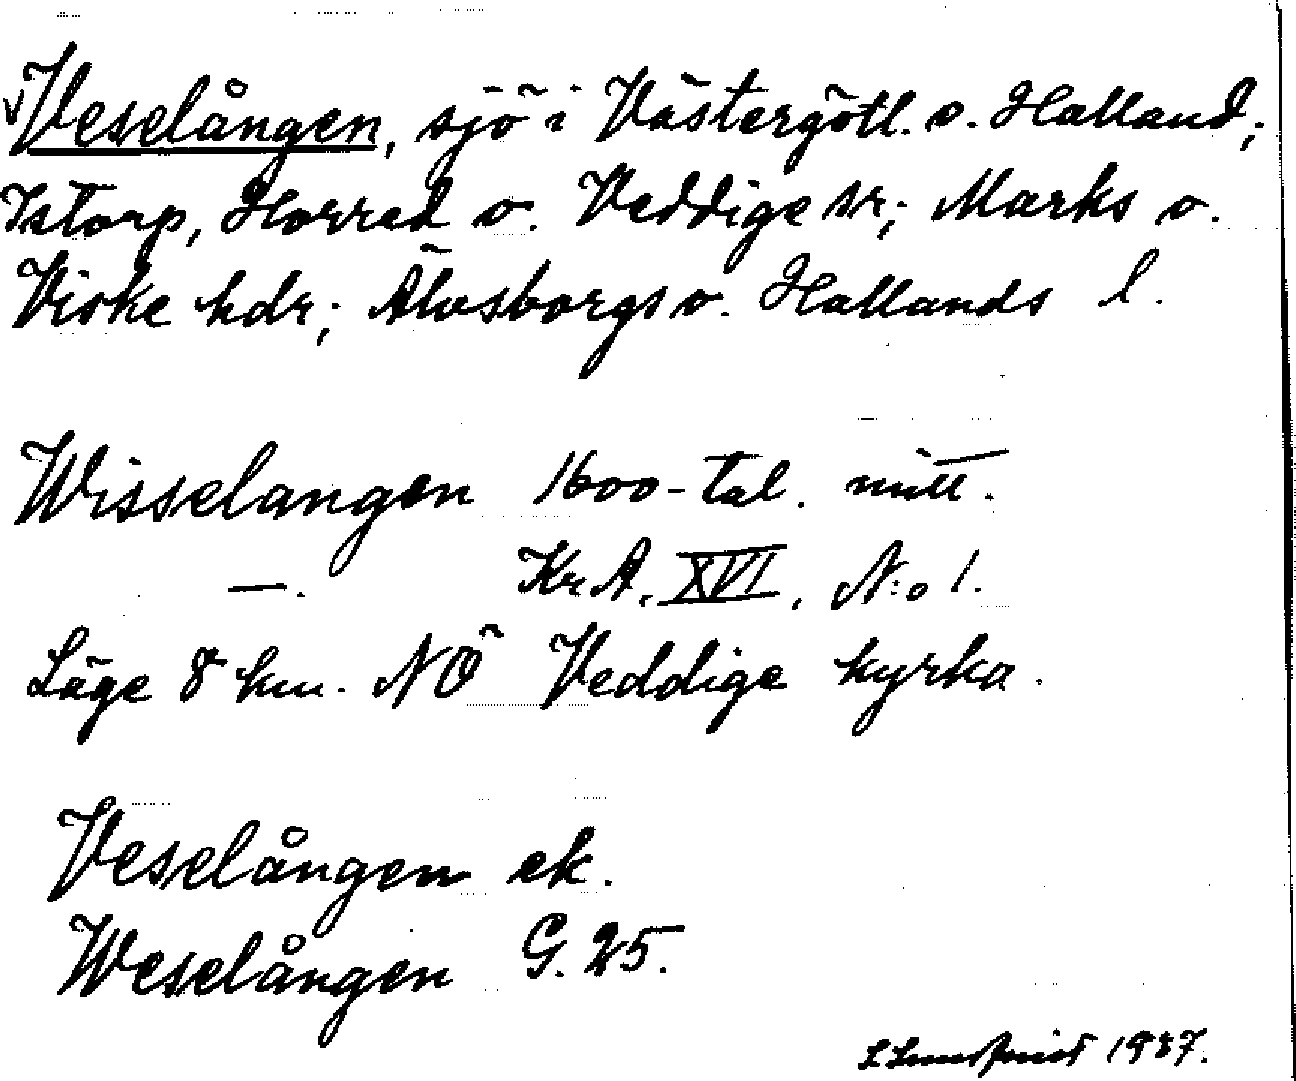 Veselången, sjö i Västergötl. o. Halland;
Istorp, Horred o. Veddige sr; Marks o.
Viske hdr; Älvsborgs o. Hallands l.
Wisselangen 1600-tal. mitt.
—. Kr.A. XVI, N:o 1.
Läge 8 km. NÖ Veddige kyrka.
Veselången ek.
Weselången G. 25.
1937.